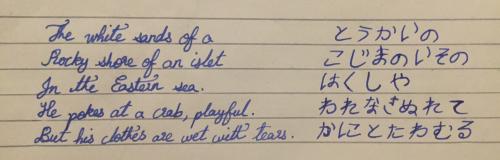 The white sands of a
Rocky shore of an islet
In the Eastern sea.
He pokes at a crab, playful.
But his clothes are wet with tears.
とうかいの
こじまのいその
はくしや
われなきぬれて
かにとたわむる